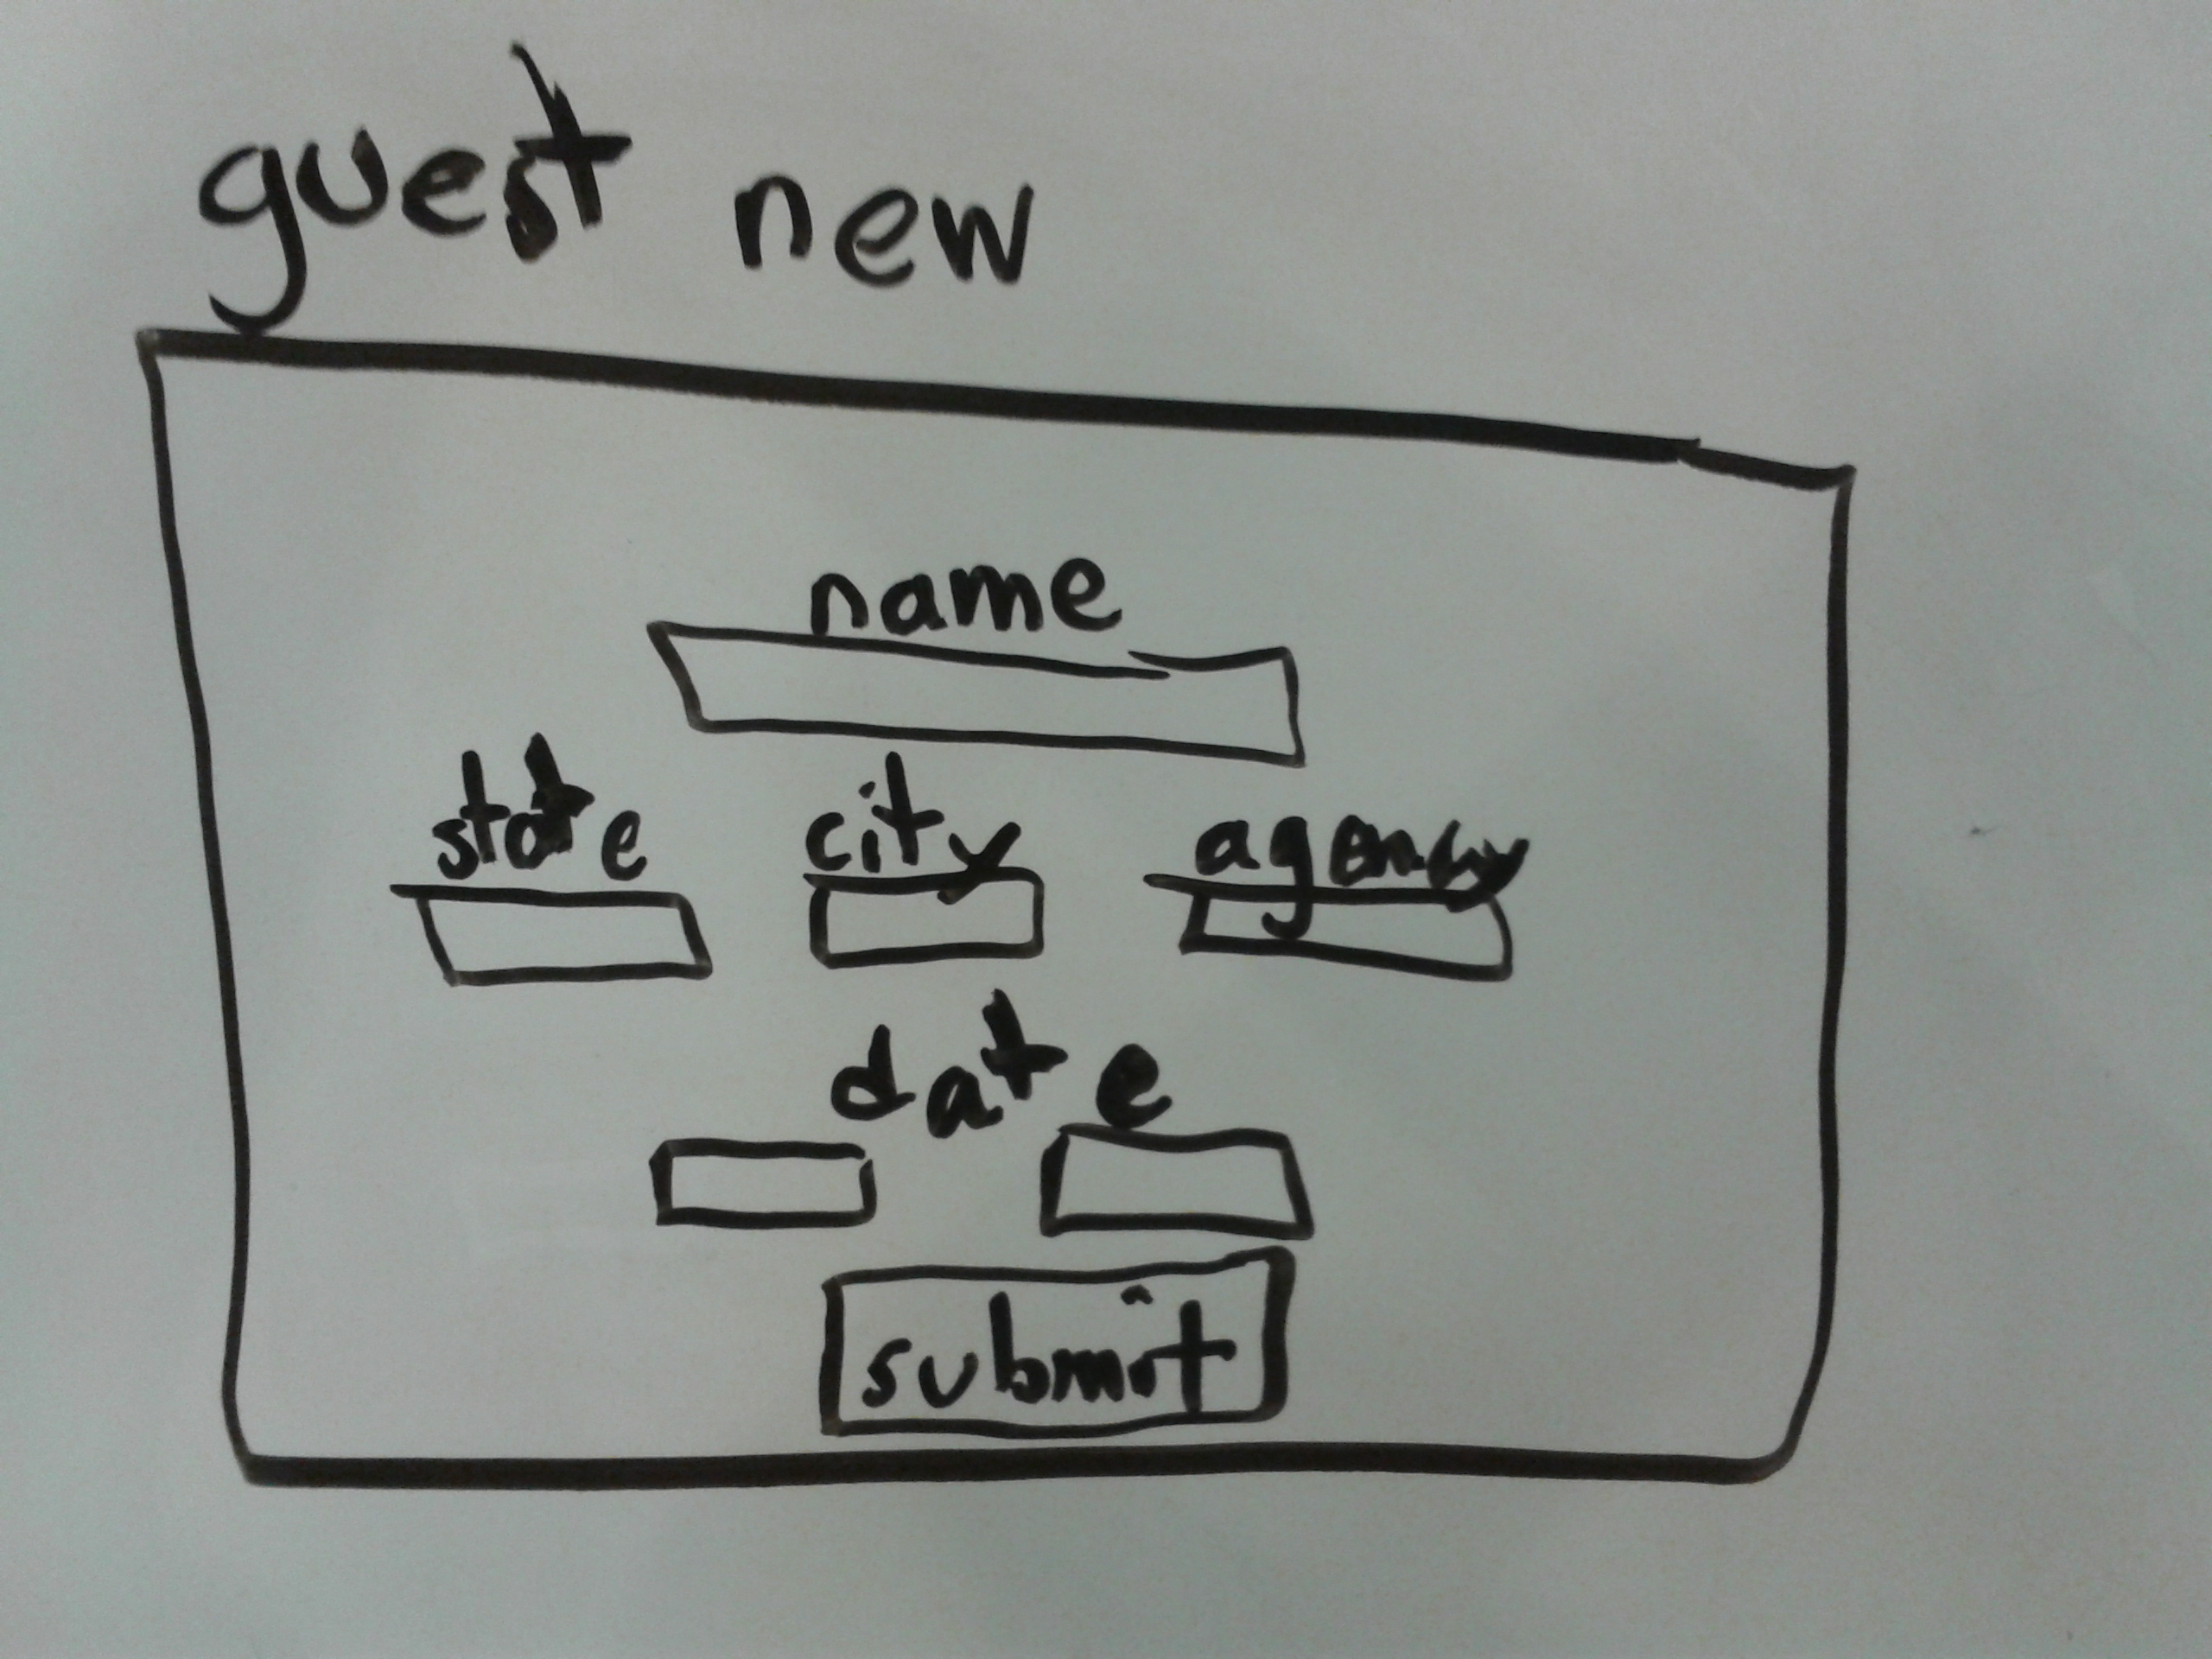 guest new
name
state city agency
date
submit